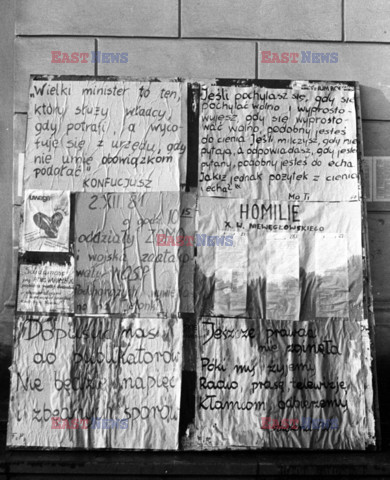 „Wielki minister to ten,
który służy władcy,
gdy potrafi, a wyco-
fuje się z urzędu, gdy
nie umie obowiązkom
podołać"
KONFUCJUSZ
„Jeśli pochylasz się, gdy się
pochylać wolno i wyprosto-
wujesz, gdy się wyprosto-
wać wolno, podobny jesteś
do cienia. Jeśli milczysz, gdy nie
pytają, a odpowiadasz, gdy jesteś
pytany, podobny jesteś do echa.
Jakiż jednak pożytek z cienia
i echa?"
Mo Ti
2 XII 81
o godz 10
oddziały ZOMO
wojska zaata
wały WOSP
HOMILIE
X. W. NIEWĘGŁOWSKIEGO
Dopuście mas
do publikatorów
Nie będzie napięć
i zbędnych sporów
Jeszcze prawda
nie zginęła
Póki my żyjemy
Radio, prasę telewizję
Kłamcom odbierzemy
EAST NEWS
EAST NEWS
EAST NEWS
EAST NEWS
EAST NEWS
EAST NEWS